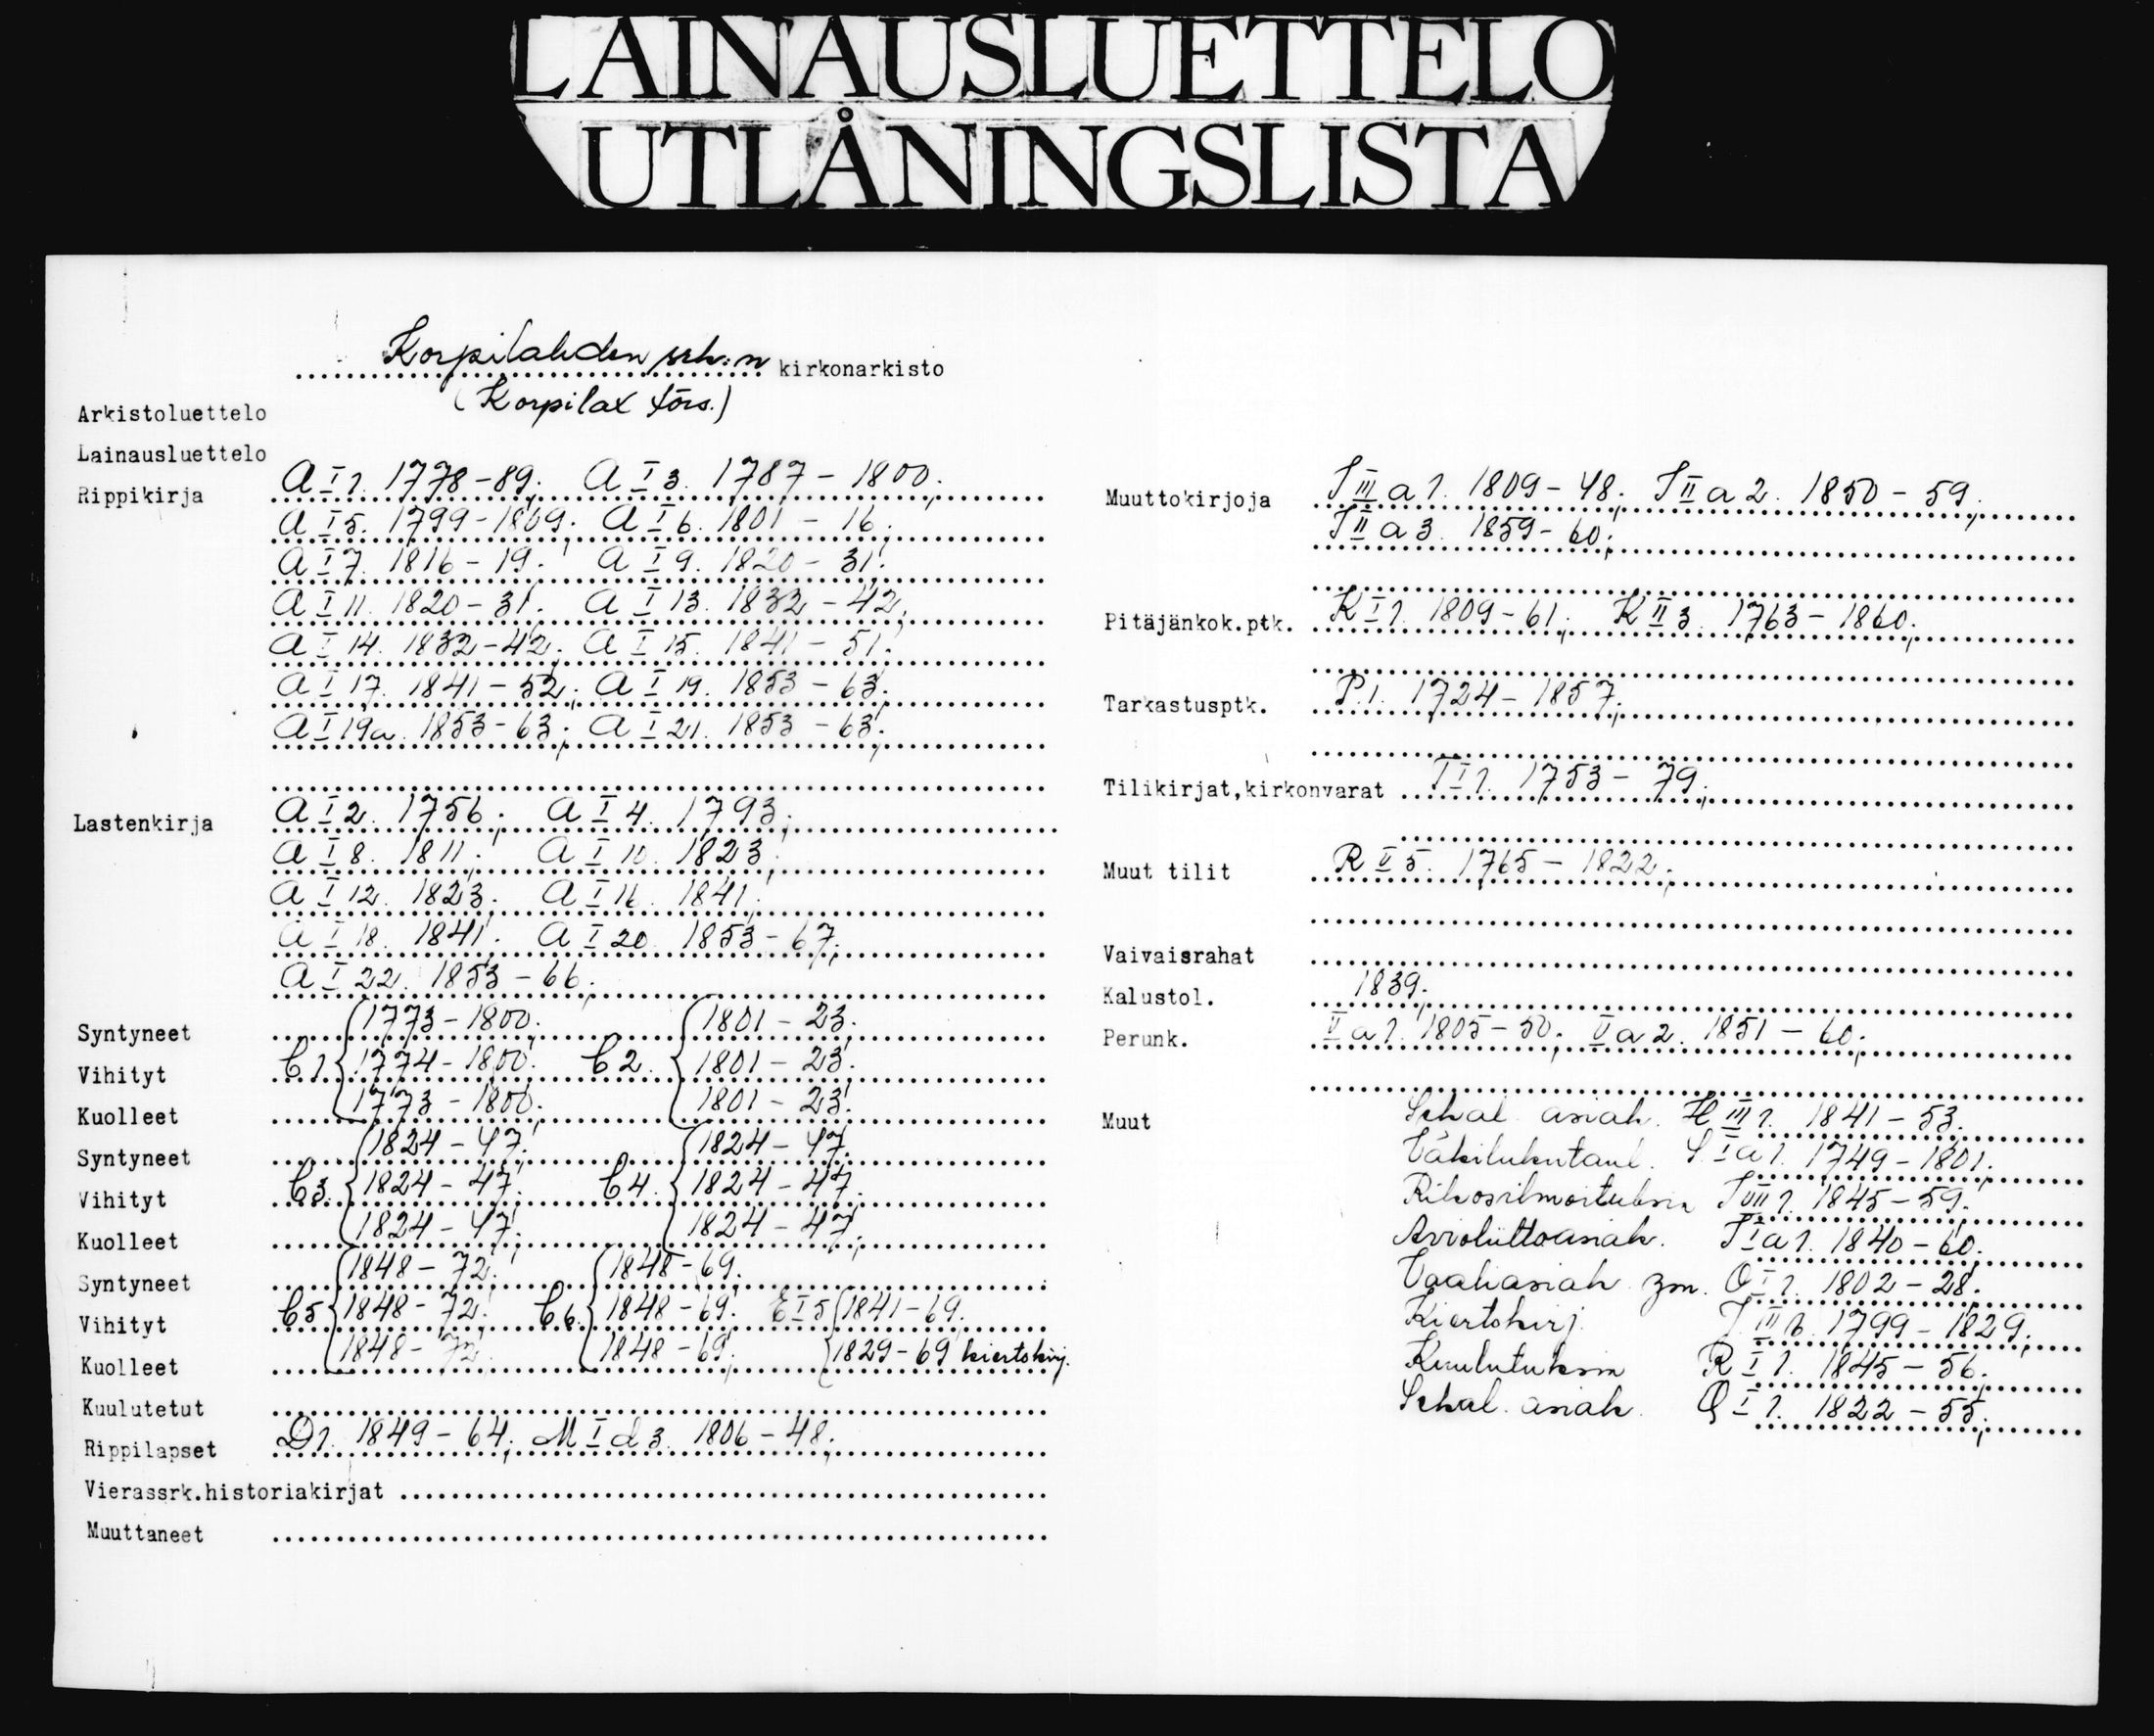 LAINAUSLUETTELO
UTLÅNINGSLISTA
Korpilahden srk:n kirkonarkisto
(Korpilax förs.)
Arkistoluettelo
Lainausluettelo
Rippikirja A I 1. 1778-89; A I 3. 1787-1800;
A I 5. 1799-1809; A I 6. 1801-16;
A I 7. 1816-19; A I 9. 1820-31;
A I 11. 1820-31; A I 13. 1832-42;
A I 14. 1832-42; A I 15. 1841-51;
A I 17. 1841-52; A I 19. 1853-63;
A I 19a. 1853-63; A I 21. 1853-63;
Lastenkirja A I 2. 1756; A I 4. 1793;
A I 8. 1811; A I 10. 1823;
A I 12. 1823; A I 16. 1841;
A I 18. 1841; A I 20. 1853-67;
A I 22. 1853-66;
Syntyneet 1773-1800; 1801-23;
Vihityt C1 1774-1800; C2. 1801-23;
Kuolleet 1773-1800; 1801-23;
Syntyneet 1824-47; 1824-47;
Vihityt C3. 1824-47; C4. 1824-47;
Kuolleet 1824-47; 1824-47;
Syntyneet 1848-72; 1848-69;
Vihityt C5 1848-72; C6 1848-69; E I 5 1841-69;
Kuolleet 1848-72; 1848-69; 1829-69 kiertokirj.
Kuulutetut
Rippilapset D1. 1849-64; M I d 3. 1806-48;
Vierassrk.historiakirjat
Muuttaneet
Muuttokirjoja J III a 1. 1809-48; J II a 2. 1850-59;
J II a 3. 1859-60;
Pitäjänkok.ptk. K I 1. 1809-61; K II 3. 1763-1860;
Tarkastusptk. P.1. 1724-1857;
Tilikirjat,kirkonvarat I 1. 1753-79;
Muut tilit R II 5. 1765-1822;
Vaivaisrahat
Kalustol. 1839;
Perunk. II a 1. 1805-50; II a 2. 1851-60;
Muut Sekal. asiak. H III 1. 1841-53.
Väkilukutaul. I a 1. 1749-1801;
Rikosilmoituksia J VII 1. 1845-59;
Avioliittoasiak. J I a 1. 1840-60;
Vaaliasiak. ym. O I 1. 1802-28;
Kiertokirj. J III b. 1799-1829;
Kuulutuksia R I 1. 1845-56;
Sekal. asiak. Q I 1. 1822-55;